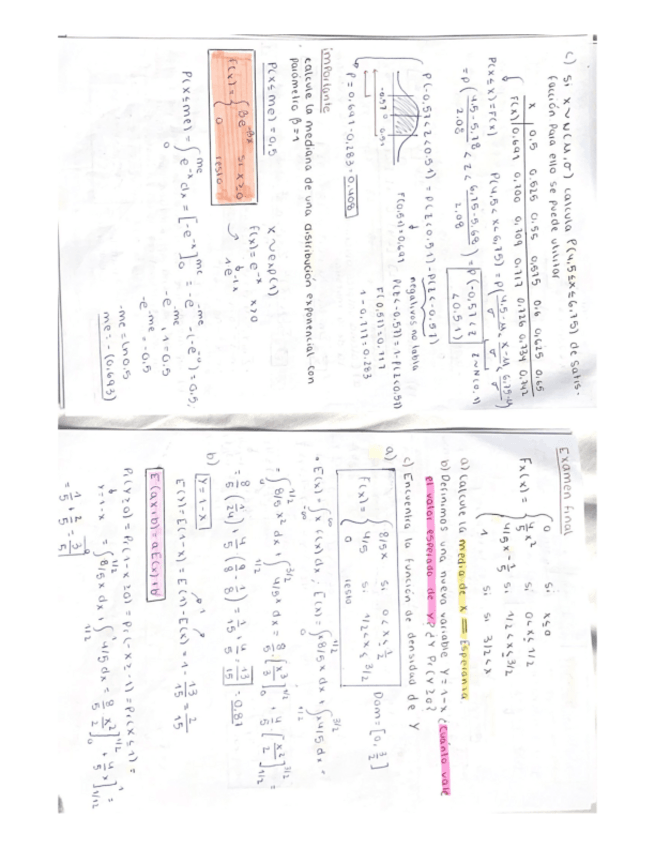 c) Si x ~ N(μ, σ) calcula P(4,5≤x≤6,75) de satis-
facción para ello se puede utilizar
x 0,5 0,525 0,55 0,575 0,6 0,625 0,65
F(x) 0,691 0,700 0,709 0,717 0,726 0,734 0,742
P(x≤x)=F(x) P(4,5<x<6,75)=P(
=P( 4,5-5,68 / 2,08 < z < 6,75-5,68 / 2,08 )=P(-0,57<z
<0,51) z~N(0,1)
P(-0,57<z<0,51)=P(z<0,51)-P(z<-0,57)
negativos no tabla
-0,57 0 0,51
F(0,51)=0,691 P(z<-0,57)=1-P(z<0,57)
F(0,57)=0,717
P=0,691-0,283=0,408 1-0,717=0,283
importante
calcule la mediana de una distribución exponencial con
parámetro β=1
P(x≤me)=0,5 x~exp(1)
f(x)= βe^-βx si x≥0
0 resto
f(x)=e^-x x>0
1e^-1x
P(x≤me)=∫ e^-x dx=[-e^-x] = -e^-me -(-e^-0)=0,5;
-e^-me +1=0,5
-e^-me = -0,5
-me=ln 0,5
me=-(0,693)
Examen final
Fx(x)= 0 si x≤0
4/5 x² si 0<x≤1/2
4/5x - 1/5 si 1/2<x≤3/2
1 si 3/2<x
a) calcule la media de x = Esperanza
b) Definimos una nueva variable Y=1-x ¿cuánto vale
el valor esperado de y? ¿Y Pr(Y≥0)?
c) Encuentra la función de densidad de Y
a)
f(x)= 8/5x si 0<x≤1/2
4/5 si 1/2<x≤3/2
0 resto
Dom=[0, 3/2]
• E(x)=∫x f(x)dx; E(x)=∫x8/5x dx+∫x4/5 dx=
=∫8/5x² dx+∫4/5x dx= 8/5·[x³/3]+4/5·[x²/2]=
= 8/5(1/24)+4/5(9/8-1/8)= 1/15+4/5= 13/15 =0,87
b)
Y=1-x
E(Y)=E(1-x)=E(1)-E(x)=1-13/15=2/15
E(ax+b)=aE(x)+b
Pr(Y≥0)=Pr(1-x≥0)=Pr(-x≥-1)=Pr(x≤1)=
Y=1-x =∫8/5x dx+∫4/5 dx= 8/5 x²/2]+4/5x] =
= 1/5+2/5= 3/5